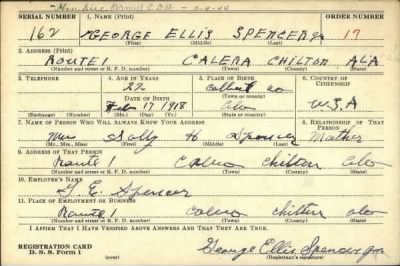 SERIAL NUMBER 1. NAME (Print) ORDER NUMBER
162 GEORGE ELLIS SPENCER Jr 17
(First) (Middle) (Last)
2. ADDRESS (Print)
ROUTE 1 CALERA CHILTON ALA
(Number and street or R. F. D. number) (Town) (County) (State)
3. TELEPHONE 4. AGE IN YEARS 5. PLACE OF BIRTH 6. COUNTRY OF CITIZENSHIP
22 Colbert co
DATE OF BIRTH (Town or county)
Feb 17 1918 Ala U.S.A
(Exchange) (Number) (Mo.) (Day) (Yr.) (State or country)
7. NAME OF PERSON WHO WILL ALWAYS KNOW YOUR ADDRESS 8. RELATIONSHIP OF THAT PERSON
Mrs Sally H Spencer Mother
(Mr., Mrs., Miss) (First) (Middle) (Last)
9. ADDRESS OF THAT PERSON
Route 1 Calera Chilton Ala
(Number and street or R. F. D. number) (Town) (County) (State)
10. EMPLOYER'S NAME
G. E. Spencer
11. PLACE OF EMPLOYMENT OR BUSINESS
Route 1 Calera Chilton Ala
(Number and street or R. F. D. number) (Town) (County) (State)
I AFFIRM THAT I HAVE VERIFIED ABOVE ANSWERS AND THAT THEY ARE TRUE.
REGISTRATION CARD
D. S. S. Form 1 (over) George Ellis Spencer Jr
(Registrant's signature)